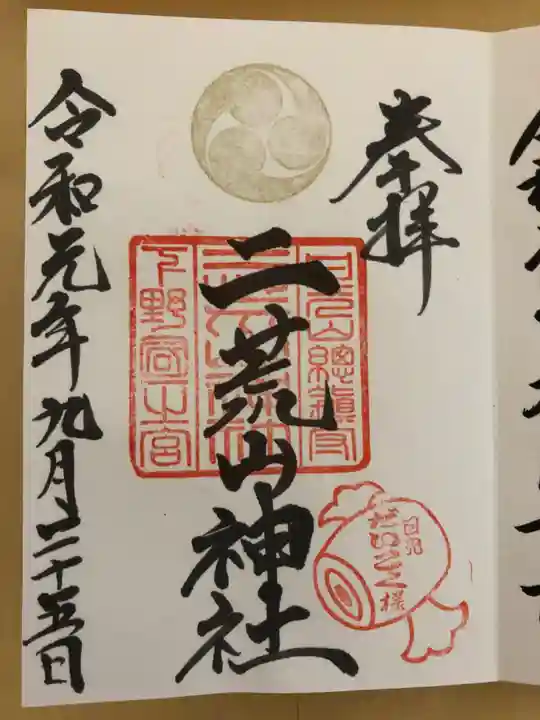 奉拝
日光山總鎮守
二荒山神社
下野國一之宮
日光
だいこく様
令和元年九月二十五日